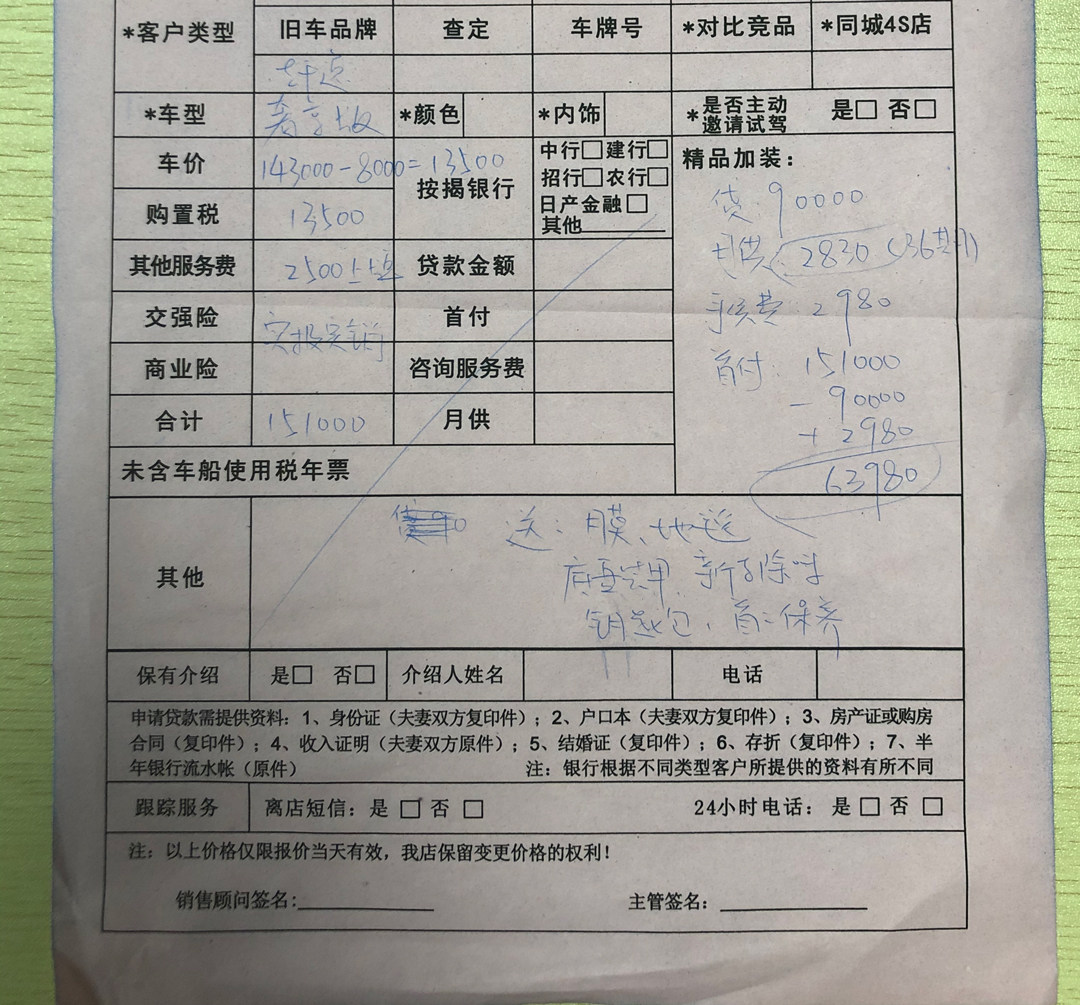 *客户类型 旧车品牌 查定 车牌号 *对比竞品 *同城4S店
*车型 奢享版 *颜色 *内饰 *是否主动邀请试驾 是□ 否□
车价 143000-8000=13500 按揭银行 中行□ 建行□
招行□ 农行□
日产金融□
其他
精品加装:
购置税 13500
贷:90000
其他服务费 2500上 贷款金额
月供 2830 (36期)
交强险 实报实销 首付
手续费:2980
商业险 咨询服务费
首付:151000
-90000
+2980
63980
合计 151000 月供
未含车船使用税年票
其他
送:膜、地
底盘装甲、新车除味
钥匙包、首二保养
保有介绍 是□ 否□ 介绍人姓名 电话
申请贷款需提供资料:1、身份证(夫妻双方复印件);2、户口本(夫妻双方复印件);3、房产证或购房
合同(复印件);4、收入证明(夫妻双方原件);5、结婚证(复印件);6、存折(复印件);7、半
年银行流水帐(原件) 注:银行根据不同类型客户所提供的资料有所不同
跟踪服务 离店短信:是 □ 否 □ 24小时电话: 是 □ 否 □
注:以上价格仅限报价当天有效,我店保留变更价格的权利!
销售顾问签名: 主管签名: